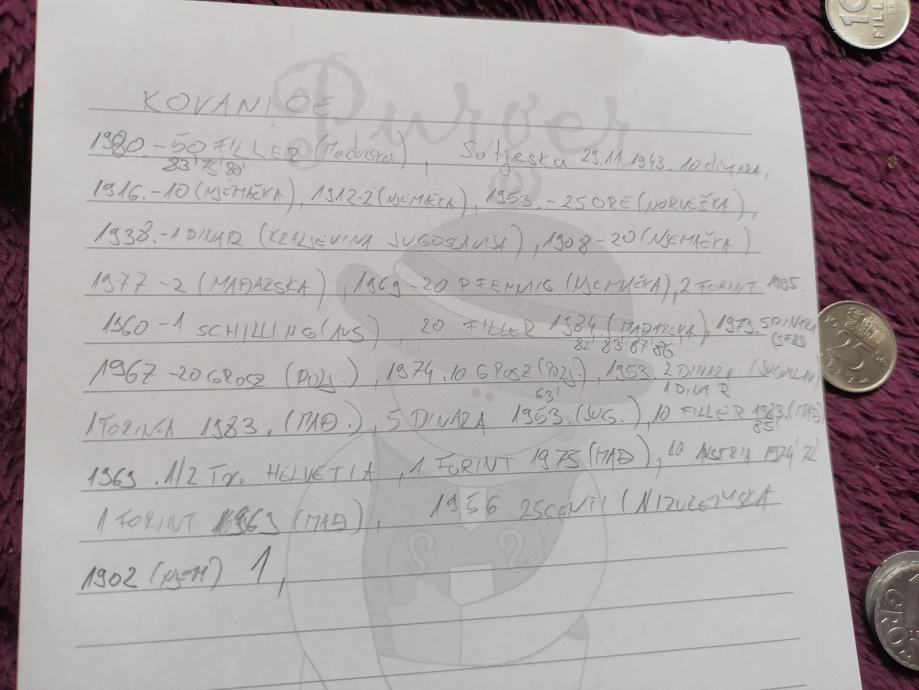 10
FILL
Purger
KOVANICE
1980 - 50 FILLER (Mađarska), Sutjeska 29.11.1943. 10 dinara,
83' 75' 80'
1916. - 10 (NJEMAČKA), 1912 - 2 (NJEMAČKA), 1953. - 25 ORE (NORVEŠKA),
1938. - 1 DINAR (KRALJEVINA JUGOSLAVIJA), 1908 - 20 (NJEMAČKA)
1977 - 2 (MAĐARSKA), 1969 - 20 PFENNIG (NJEMAČKA), 2 FORINT 1995.
1960 - 1 SCHILLING (AUS) 20 FILLER 1984 (MAĐARSKA), 1973. 5 DINARA
82' 83' 87' 86 (SER)
1967 - 20 GROSZ (POLJ.), 1974. 10 GROSZ (POLJ.), 1953. 2 DINARA (JUGOSLAV)
63' 1 DINAR
1 FORINTA 1983. (MAĐ.), 5 DINARA 1953. (JUG.), 10 FILLER 1983. (MAĐ)
85'
1969. 1/2 Fr. HELVETIA, 1 FORINT 1975 (MAĐ), 1974' 72'
1 FORINT 1969 (MAĐ), 1956 25 CENTI (NIZOZEMSKA
1902 (NJEM) 1,
25
GRO